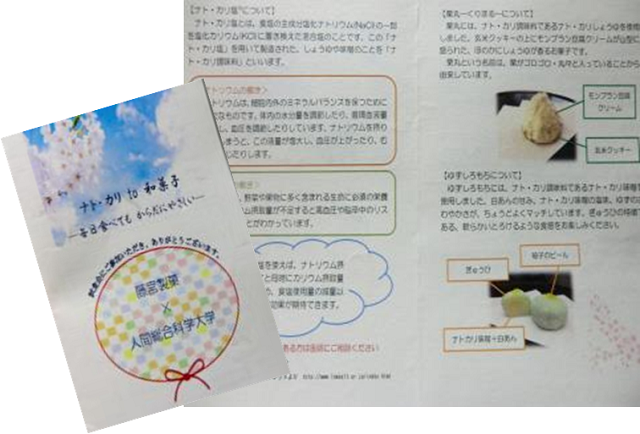 ナト・カリ to 和菓子
―毎日食べても からだにやさしい―
試食会にご参加いただき、ありがとうございます。
藤宮製菓
×
人間総合科学大学
【ナト・カリ塩®について】
ナト・カリ塩とは、食塩の主成分塩化ナトリウム(NaCl)の一部
を塩化カリウム(KCl)に置き換えた混合塩のことです。この「ナ
ト・カリ塩」を用いて製造された、しょうゆや味噌のことを「ナ
ト・カリ調味料」といいます。
ナトリウムの働き】
トリウムは、細胞内外のミネラルバランスを保つために
なものです。体内の水分量を調節したり、循環血液量
し、血圧を調節したりしています。ナトリウムを摂り
まうと、この液量が増大し、血圧が上がったり、む
じたりします。
の働き】
、野菜や果物に多く含まれる生命に必須の栄養
ム摂取量が不足すると高血圧や脳卒中のリス
とがわかっています。
塩を使えば、ナトリウム摂
と同時にカリウム摂取量
、食塩使用量の減量以
効果が期待できます。
ある方は医師にご相談ください
【栗丸―くりまる―について】
栗丸には、ナト・カリ調味料であるナト・カリしょうゆを使用
しました。玄米クッキーの上にモンブラン豆腐クリームが山型に
絞られた、ほのかにしょうゆが香るお菓子です。
栗丸という名前は、栗がゴロゴロ・丸々と入っていることから
由来しています。
モンブラン豆腐
クリーム
玄米クッキー
【ゆずしろもちについて】
ゆずしろもちには、ナト・カリ調味料であるナト・カリ味噌を
使用しました。白あんの甘み、ナト・カリ味噌の塩味、ゆずの
わやかさが、ちょうどよくマッチしています。ぎゅうひの特徴
ある、軟らかいとろけるような食感をお楽しみください。
柚子のピール
ぎゅうひ
ナトカリ味噌+白あん